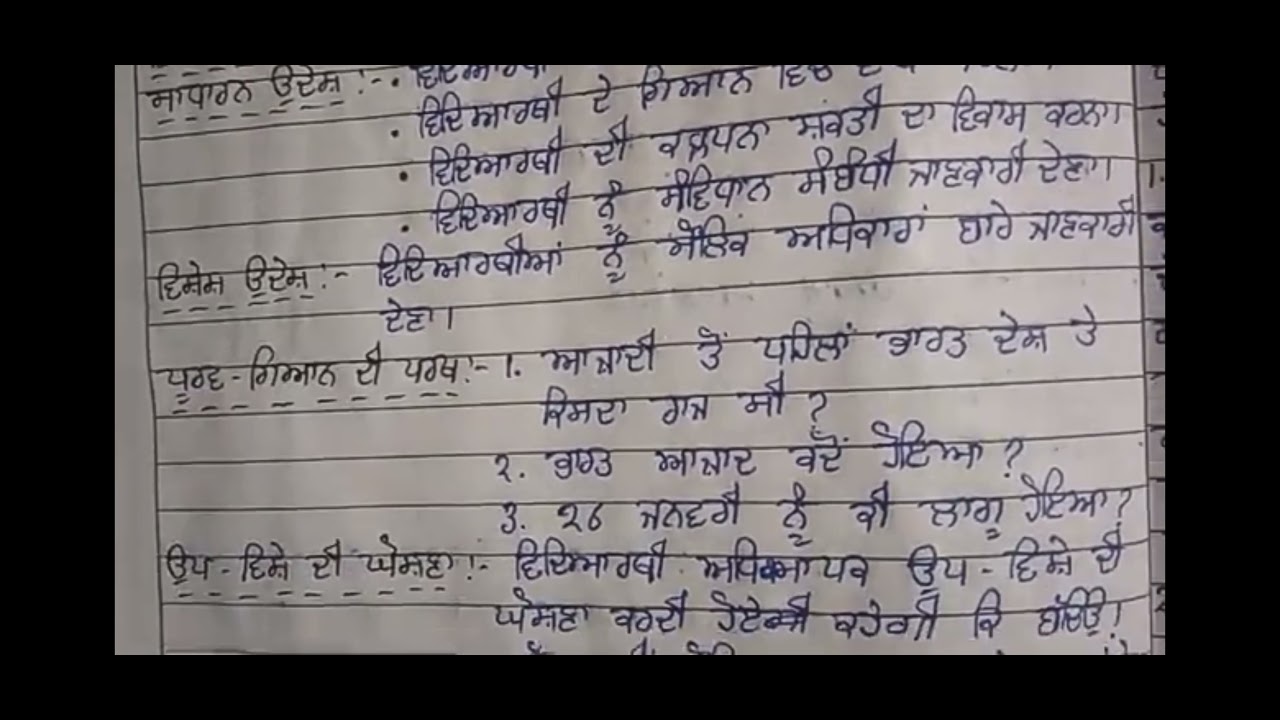 ਸਾਧਾਰਨ ਉਦੇਸ਼ :- • ਵਿਦਿਆਰਥੀ
• ਵਿਦਿਆਰਥੀ ਦੇ ਗਿਆਨ ਵਿਚ
• ਵਿਦਿਆਰਥੀ ਦੀ ਕਲਪਨਾ ਸ਼ਕਤੀ ਦਾ ਵਿਕਾਸ ਕਰਨਾ।
• ਵਿਦਿਆਰਥੀ ਨੂੰ ਸੰਵਿਧਾਨ ਸੰਬੰਧੀ ਜਾਣਕਾਰੀ ਦੇਣਾ।
ਵਿਸ਼ੇਸ਼ ਉਦੇਸ਼ :- ਵਿਦਿਆਰਥੀਆਂ ਨੂੰ ਮੌਲਿਕ ਅਧਿਕਾਰਾਂ ਬਾਰੇ ਜਾਣਕਾਰੀ
ਦੇਣਾ।
ਪੂਰਵ-ਗਿਆਨ ਦੀ ਪਰਖ :- 1. ਆਜ਼ਾਦੀ ਤੋਂ ਪਹਿਲਾਂ ਭਾਰਤ ਦੇਸ਼ ਤੇ
ਕਿਸਦਾ ਰਾਜ ਸੀ ?
੨. ਭਾਰਤ ਆਜ਼ਾਦ ਕਦੋਂ ਹੋਇਆ ?
੩. ੨੬ ਜਨਵਰੀ ਨੂੰ ਕੀ ਲਾਗੂ ਹੋਇਆ ?
ਉਪ-ਵਿਸ਼ੇ ਦੀ ਘੋਸ਼ਣਾ :- ਵਿਦਿਆਰਥੀ ਅਧਿਆਪਕ ਉਪ-ਵਿਸ਼ੇ ਦੀ
ਘੋਸ਼ਣਾ ਕਰਦੀ ਹੋਏ ਕਹੇਗੀ ਕਿ ਬੱਚਿਓ!